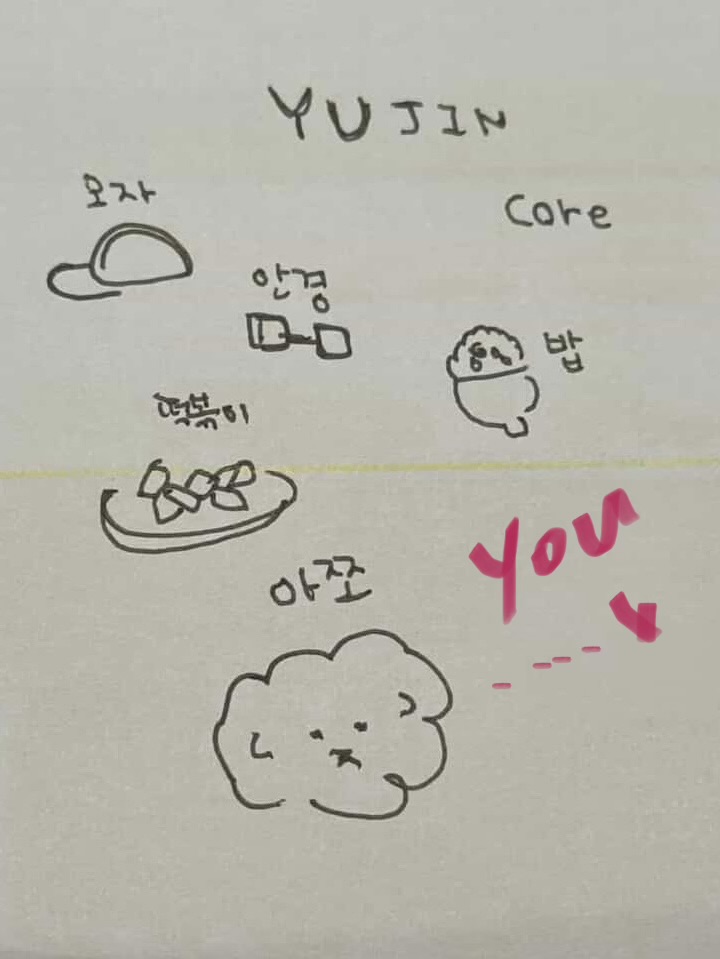 YUJIN
모자
Core
안경
밥
떡볶이
아쪼
You